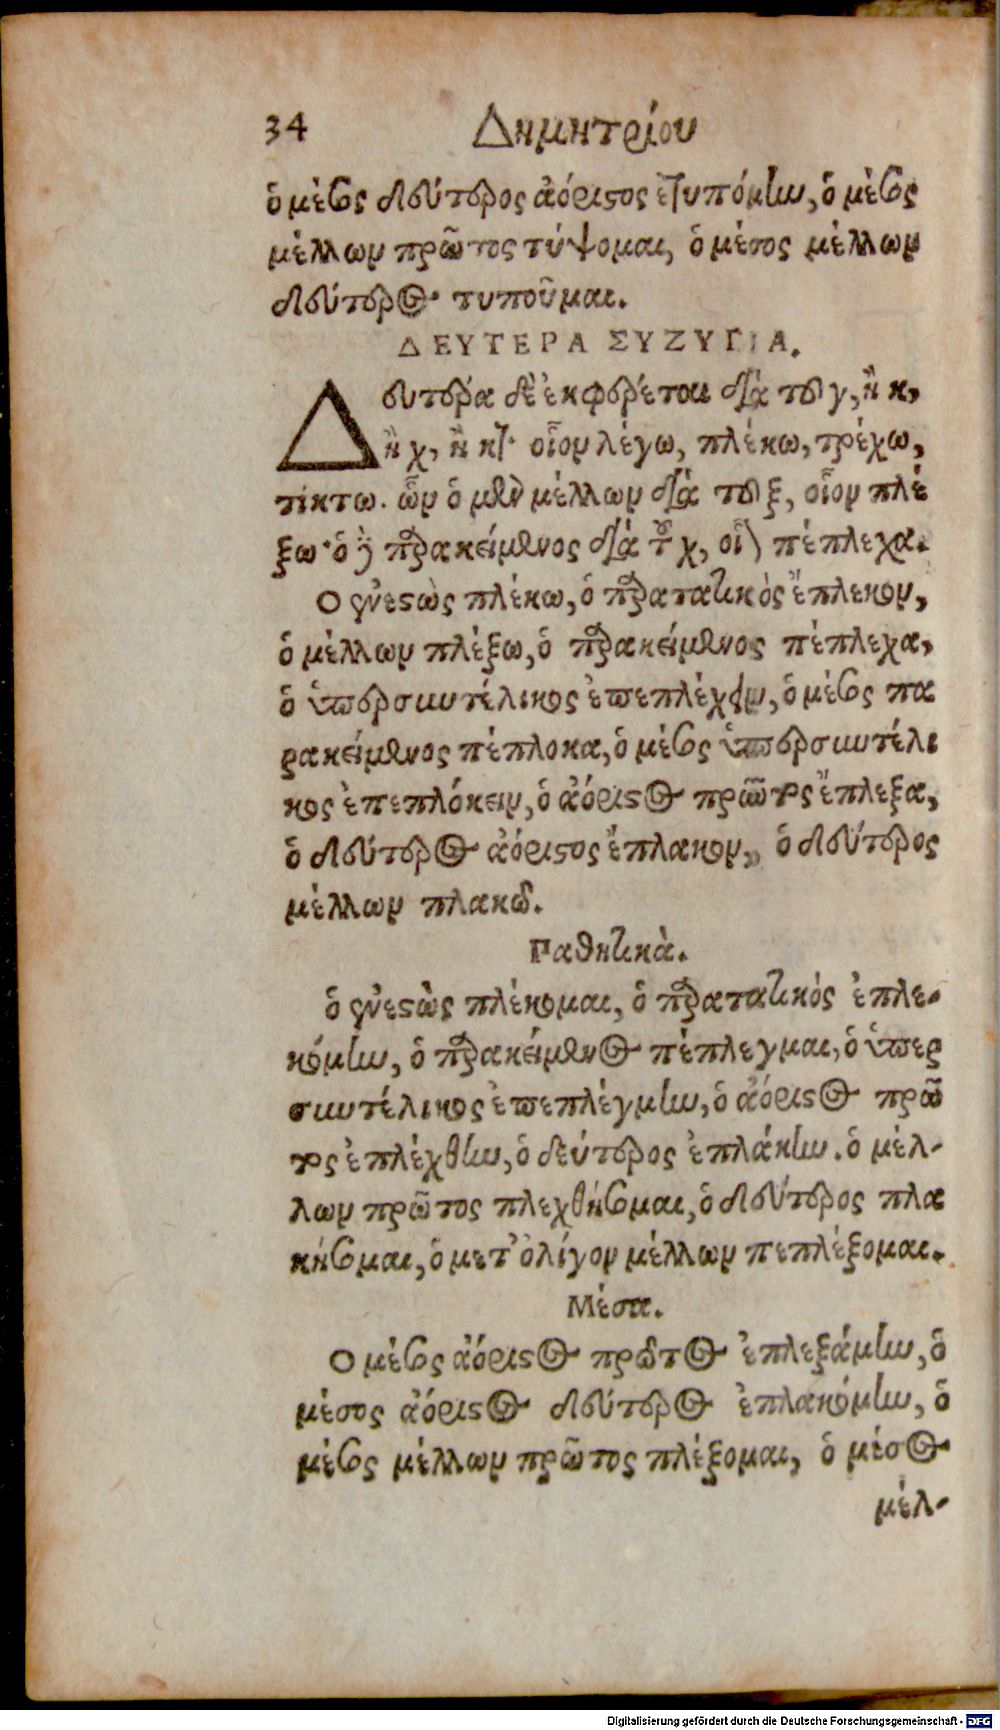 34 Δημητρίου
ὁ μέσος δεύτερος ἀόριστος ἐτυπόμην, ὁ μέσος
μέλλων πρῶτος τύψομαι, ὁ μέσος μέλλων
δεύτερος τυποῦμαι.
ΔΕΥΤΕΡΑ ΣΥΖΥΓΙΑ.
Δευτέρα δὲ ἐκφέρεται διὰ τοῦ γ, ἢ κ,
ἢ χ, ἢ κτ· οἷον λέγω, πλέκω, τρέχω,
τίκτω. ὧν ὁ μὲν μέλλων διὰ τοῦ ξ, οἷον πλέ
ξω· ὁ δὲ παρακείμενος διὰ τοῦ χ, οἷον πέπλεχα.
Ο ἐνεστὼς πλέκω, ὁ παρατατικὸς ἔπλεκον,
ὁ μέλλων πλέξω, ὁ παρακείμενος πέπλεχα,
ὁ ὑπερσυντέλικος ἐπεπλέχειν, ὁ μέσος πα
ρακείμενος πέπλοκα, ὁ μέσος ὑπερσυντέλι
κος ἐπεπλόκειν, ὁ ἀόριστος πρῶτος ἔπλεξα,
ὁ δεύτερος ἀόριστος ἔπλακον, ὁ δεύτερος
μέλλων πλακῶ.
Παθητικὰ.
ὁ ἐνεστὼς πλέκομαι, ὁ παρατατικὸς ἐπλε-
κόμην, ὁ παρακείμενος πέπλεγμαι, ὁ ὑπερ
συντέλικος ἐπεπλέγμην, ὁ ἀόριστος πρῶ
τος ἐπλέχθην, ὁ δεύτερος ἐπλάκην. ὁ μέλ-
λων πρῶτος πλεχθήσομαι, ὁ δεύτερος πλα
κήσομαι, ὁ μετ' ὀλίγον μέλλων πεπλέξομαι.
Μέσα.
Ο μέσος ἀόριστος πρῶτος ἐπλεξάμην, ὁ
μέσος ἀόριστος δεύτερος ἐπλακόμην, ὁ
μέσος μέλλων πρῶτος πλέξομαι, ὁ μέσος
μέλ-
Digitalisierung gefördert durch die Deutsche Forschungsgemeinschaft - DFG